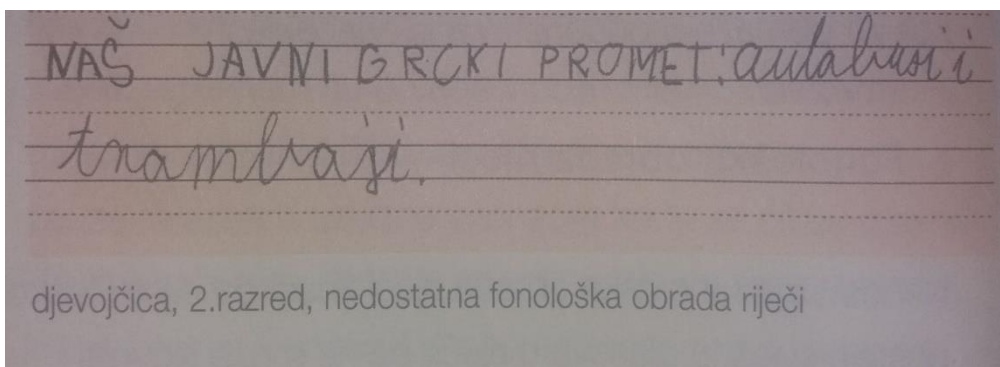 NAŠ JAVNI GRCKI PROMET: autabusi i
trambaji.
djevojčica, 2.razred, nedostatna fonološka obrada riječi